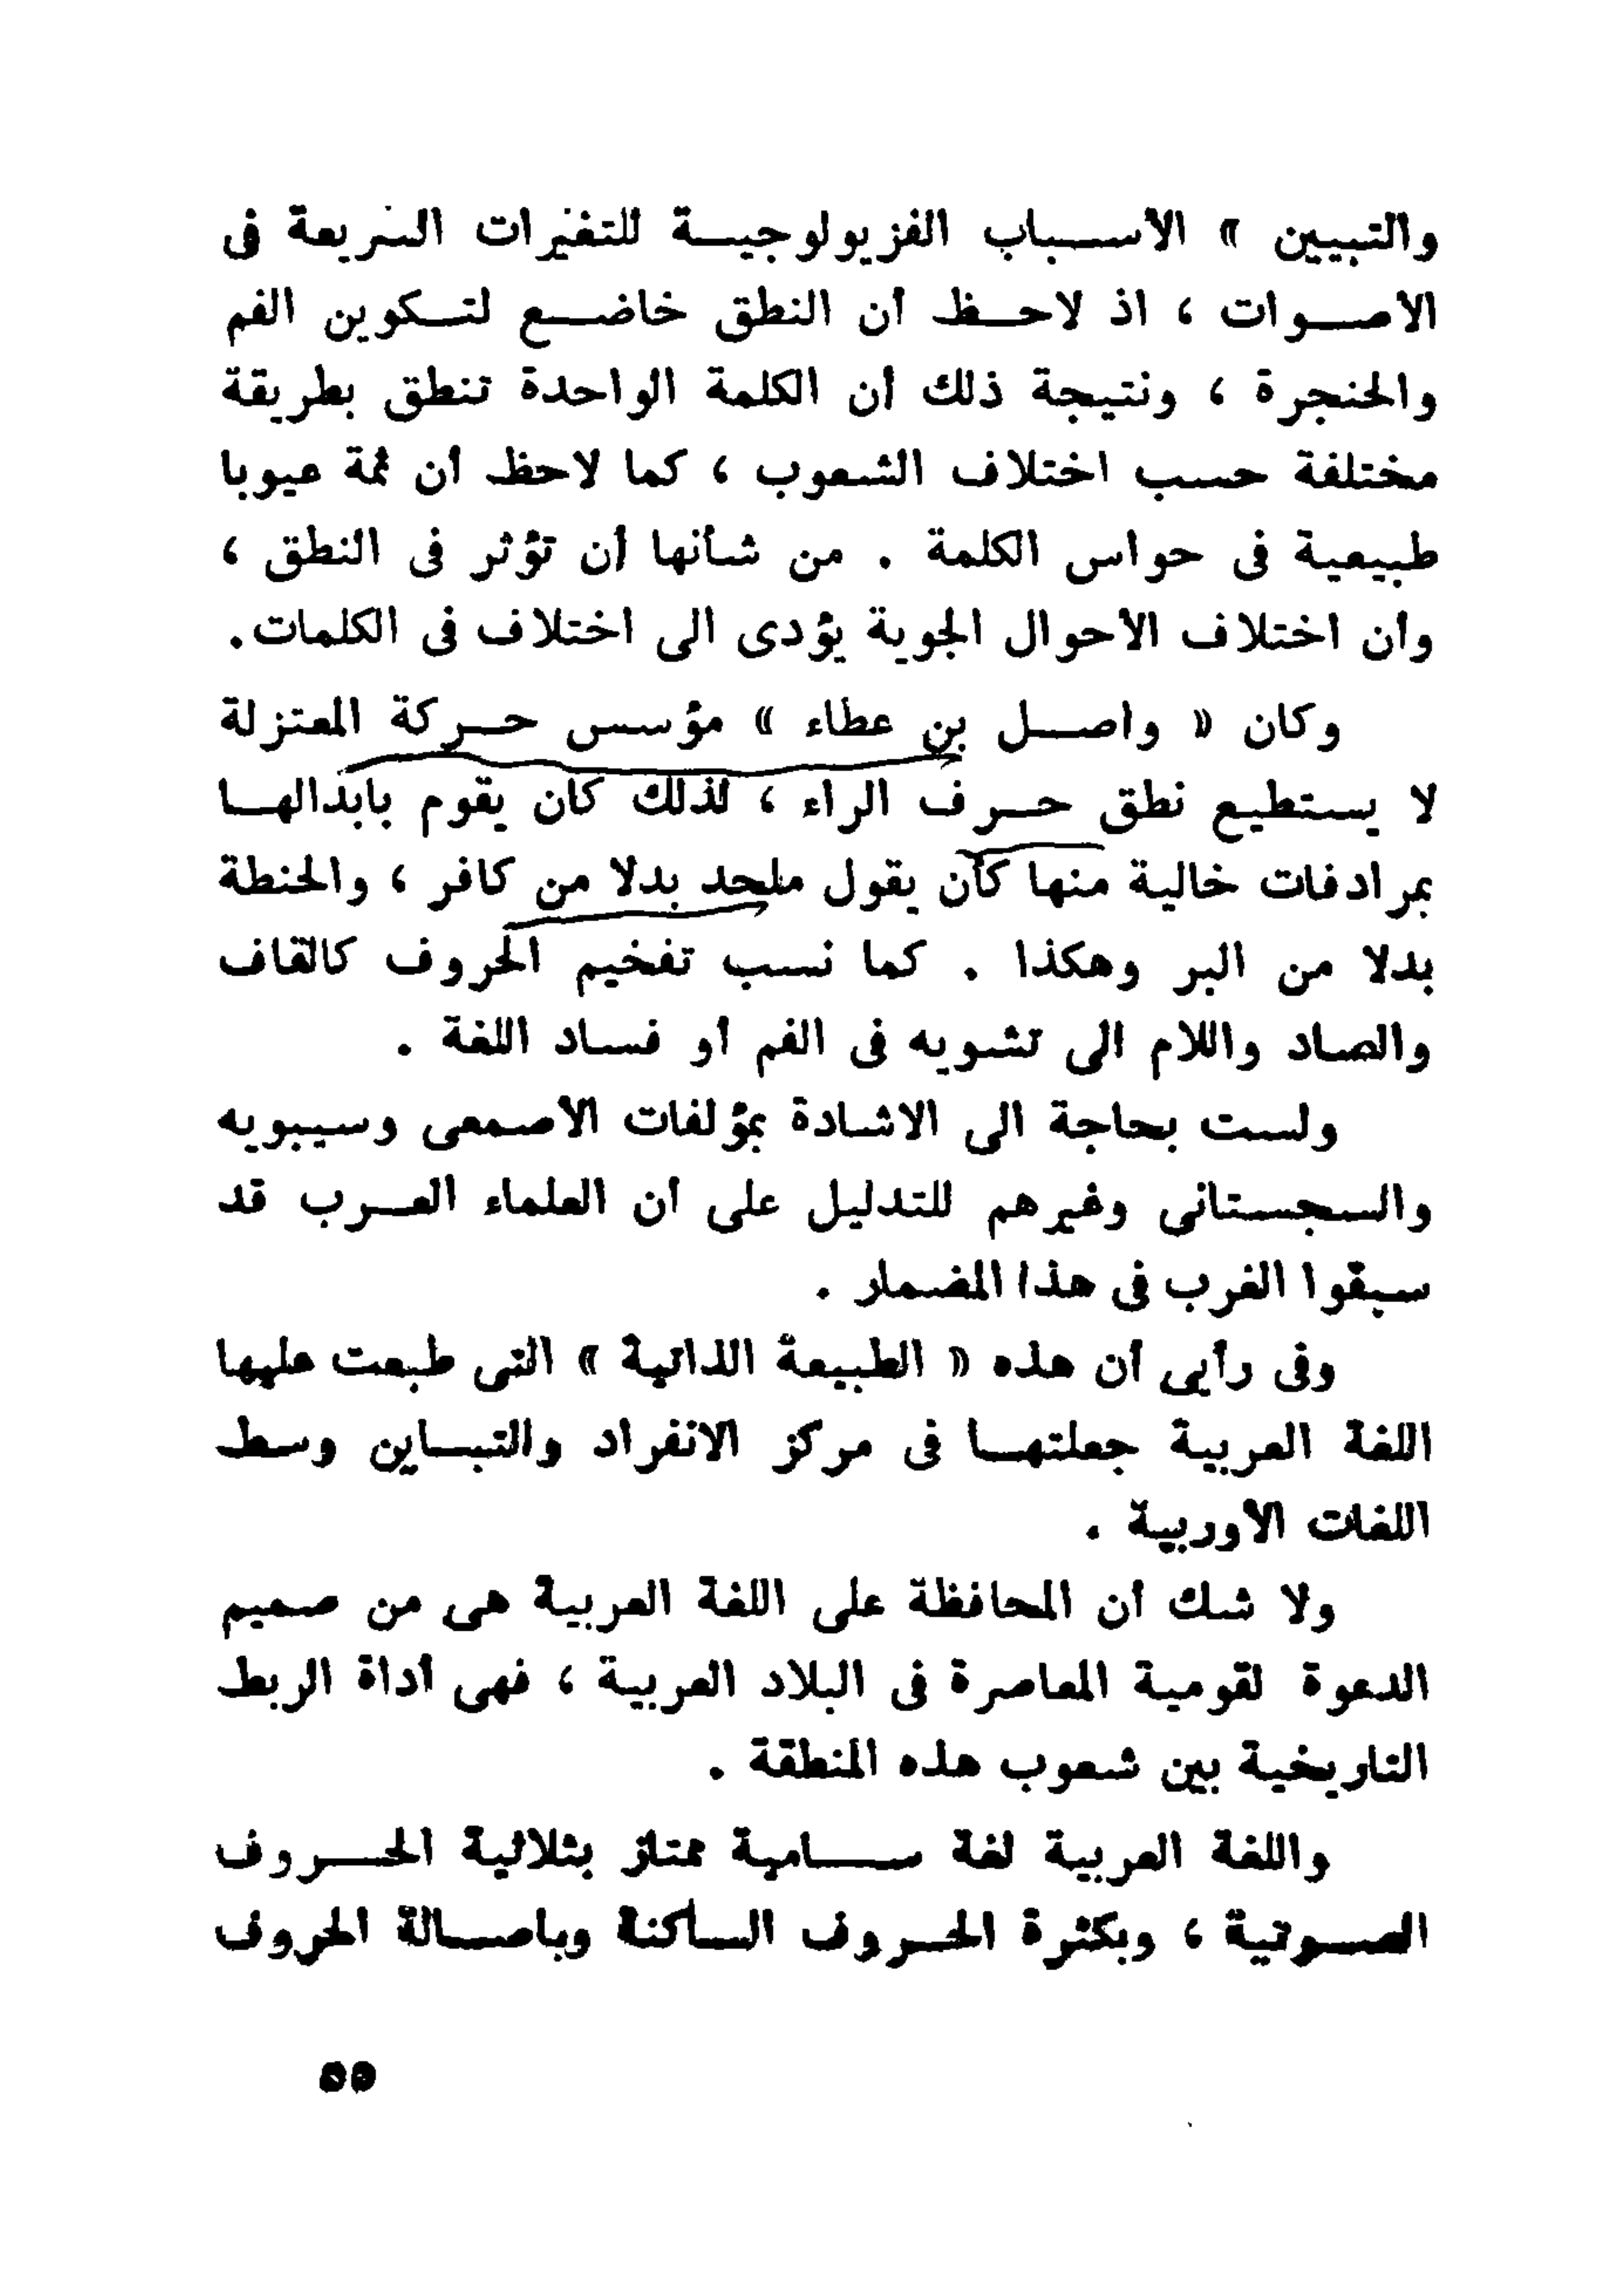 والتبيين » الأسباب الفزيولوجية للتغيرات السريعة فى
الاصوات ، اذ لاحظ أن النطق خاضع لتكوين الفم
والحنجرة ، ونتيجة ذلك أن الكلمة الواحدة تنطق بطريقة
مختلفة حسب اختلاف الشعوب ، كما لاحظ أن ثمة عيوبا
طبيعية فى حواس الكلمة . من شأنها أن تؤثر فى النطق ،
وأن اختلاف الأحوال الجوية يؤدى الى اختلاف فى الكلمات.
وكان « واصل بن عطاء » مؤسس حركة المعتزلة
لا يستطيع نطق حرف الراء ، لذلك كان يقوم بابدالها
بمرادفات خالية منها كأن يقول ملحد بدلا من كافر ، والحنطة
بدلا من البر وهكذا . كما نسب تفخيم الحروف كالقاف
والصاد واللام الى تشويه فى الفم أو فساد اللغة .
ولست بحاجة الى الاشادة بمؤلفات الأصمعى وسيبويه
والسجستانى وغيرهم للتدليل على أن العلماء العرب قد
سبقوا الغرب فى هذا المضمار .
وفى رأيى أن هذه « الطبيعة الذاتية » التى طبعت عليها
اللغة العربية جعلتها فى مركز الانفراد والتباين وسط
اللغات الأوربية .
ولا شك أن المحافظة على اللغة العربية هى من صميم
الدعوة لقومية المعاصرة فى البلاد العربية ، فهى أداة الربط
التاريخية بين شعوب هذه المنطقة .
واللغة العربية لغة سامية ممتاز بثلاثية الحروف
الصوتية ، وبكثرة الحروف الساكنة وباصالة الحروف
٥٥